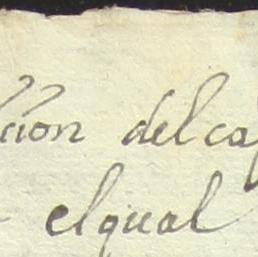 cion del ca
elqual